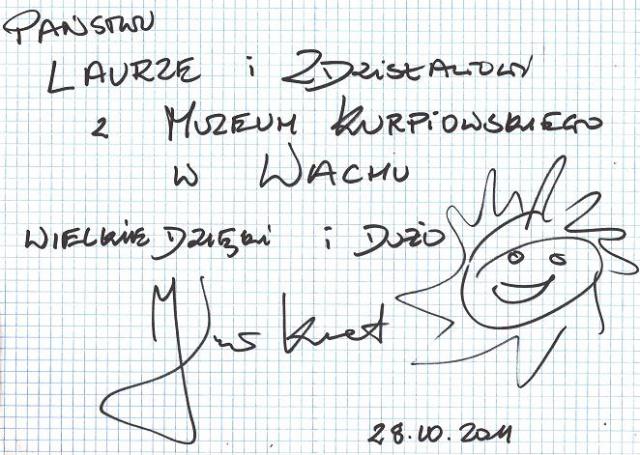 PAŃSTWU
LAURZE i ZDZISŁAWOWI
z MUZEUM KURPIOWSKIEGO
W WACHU
WIELKIE DZIĘKI i DUŻO
Kret
28.10.2011